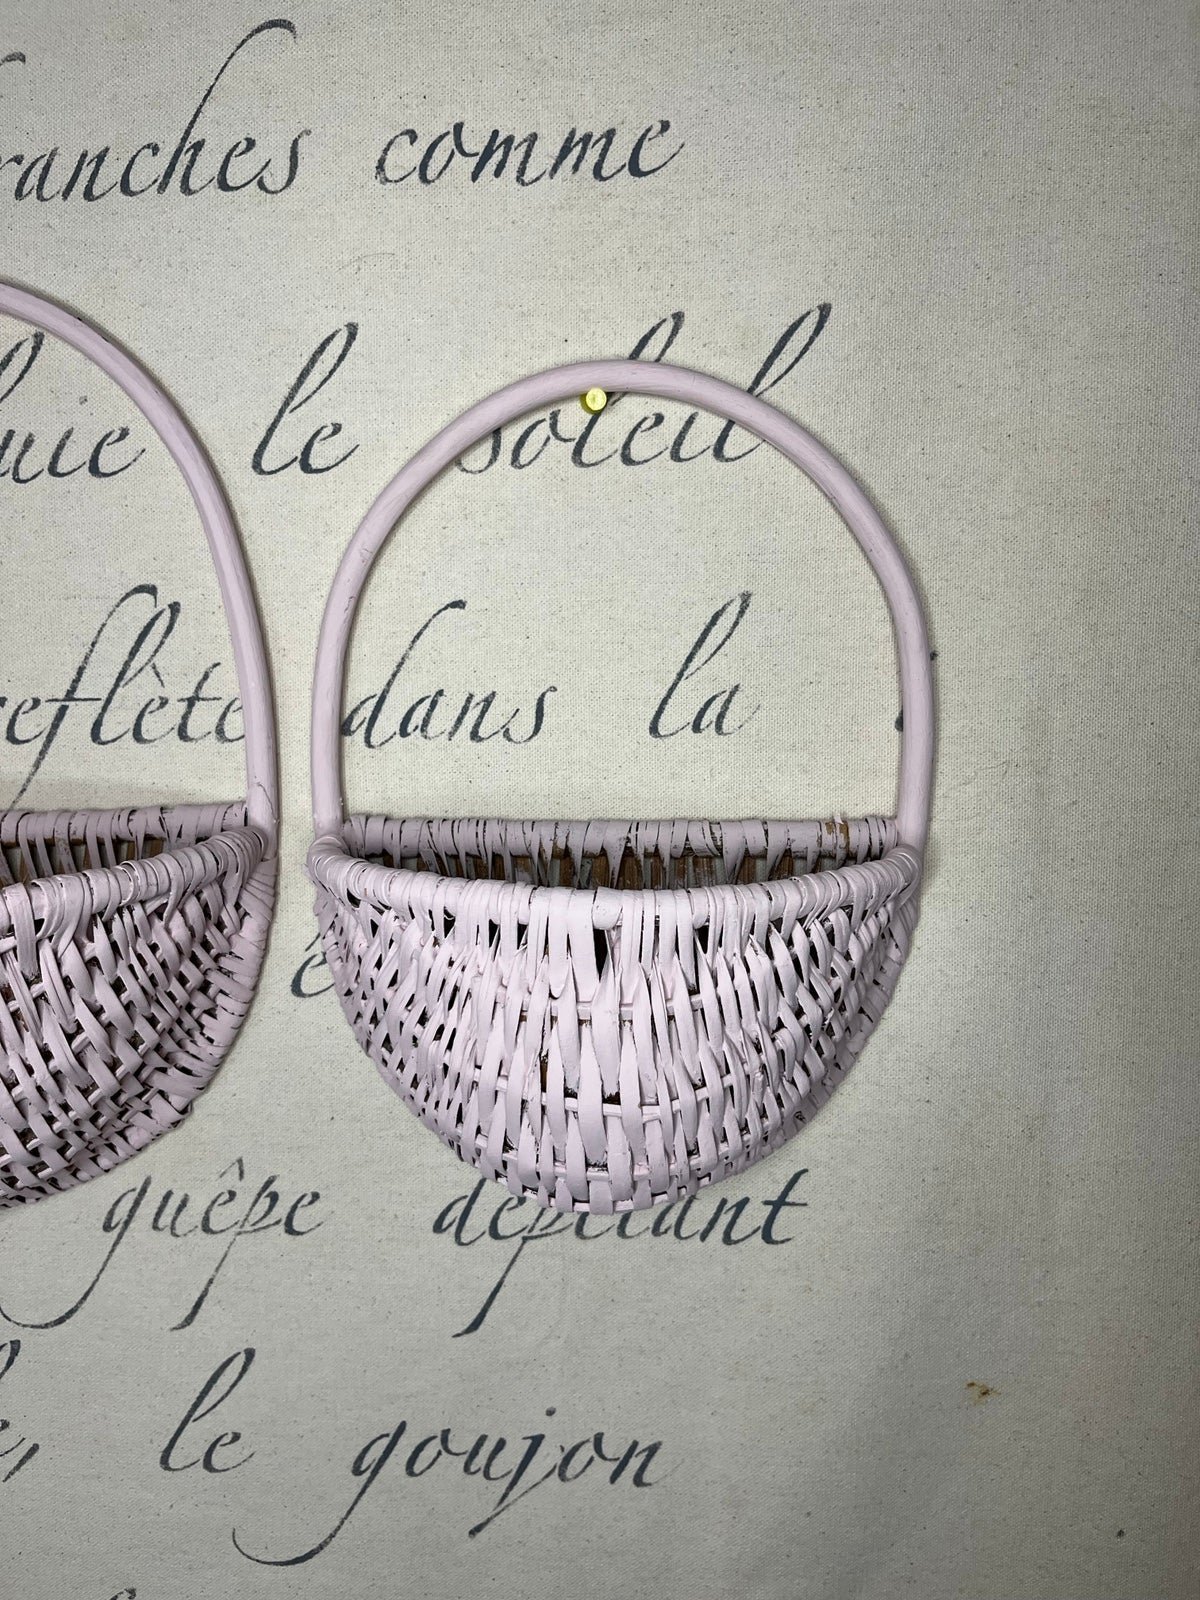 ranches comme
uie le soleil
reflète dans la
guêpe dépitant
le goujon